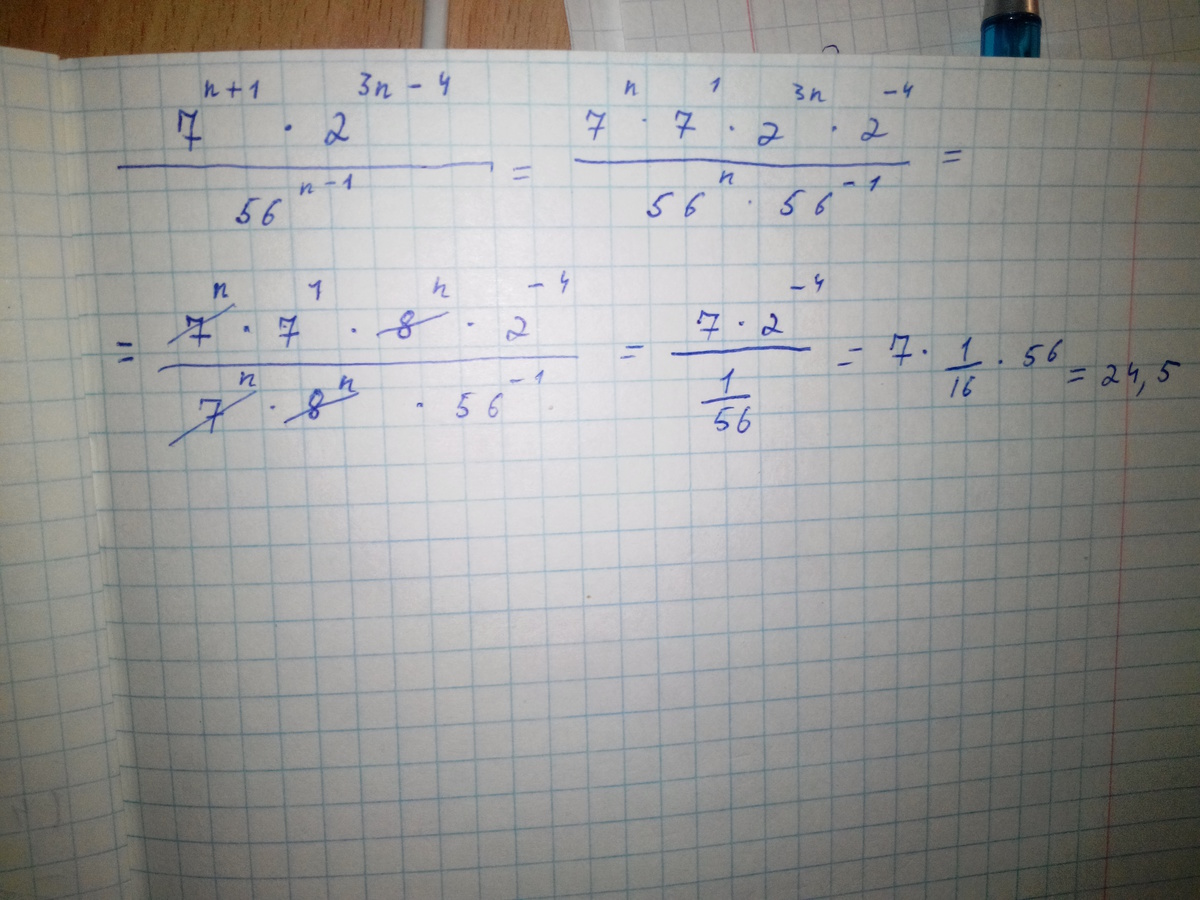 \frac{7^{n+1} \cdot 2^{3n-4}}{56^{n-1}} = \frac{7^{n} \cdot 7^{1} \cdot 2^{3n} \cdot 2^{-4}}{56^{n} \cdot 56^{-1}} =
= \frac{7^{n} \cdot 7^{1} \cdot 8^{n} \cdot 2^{-4}}{7^{n} \cdot 8^{n} \cdot 56^{-1}} = \frac{7 \cdot 2^{-4}}{\frac{1}{56}} = 7 \cdot \frac{1}{16} \cdot 56 = 24,5